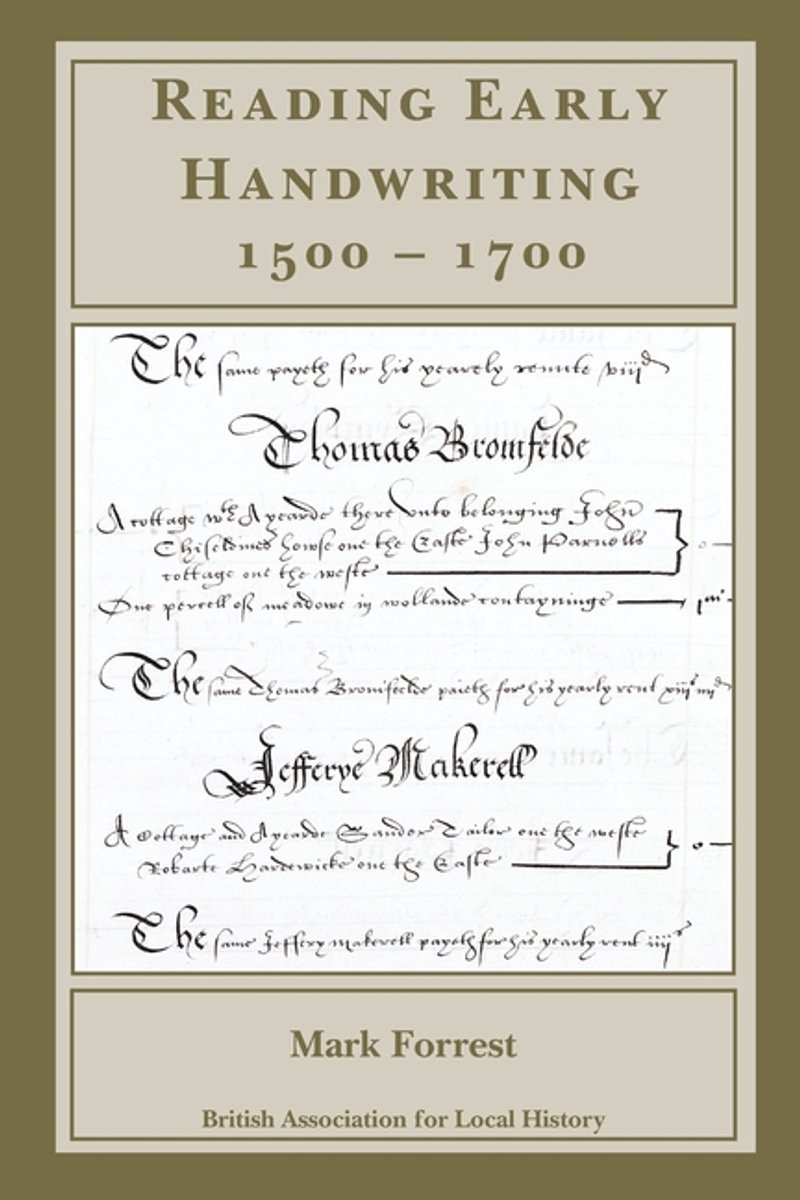 READING EARLY
HANDWRITING
1500 – 1700
The same payeth for his yearely rennte viijd
Thomas Bromfelde
A cottage wth A yearde there vnto belonging John
Chiseldines howse one the Easte John Parnells
cottage one the weste
One percell of meadowe in wollande contayninge
The same Thomas Bromfeelde paieth for his yearly rent xiijs iiijd
Jefferye Makerell
A Cottage and A yearde Sander Tailor one the weste
Robarte Hardewicke one the Easte
The same Jeffery makerell payeth for his yearly rent iiijs
Mark Forrest
British Association for Local History